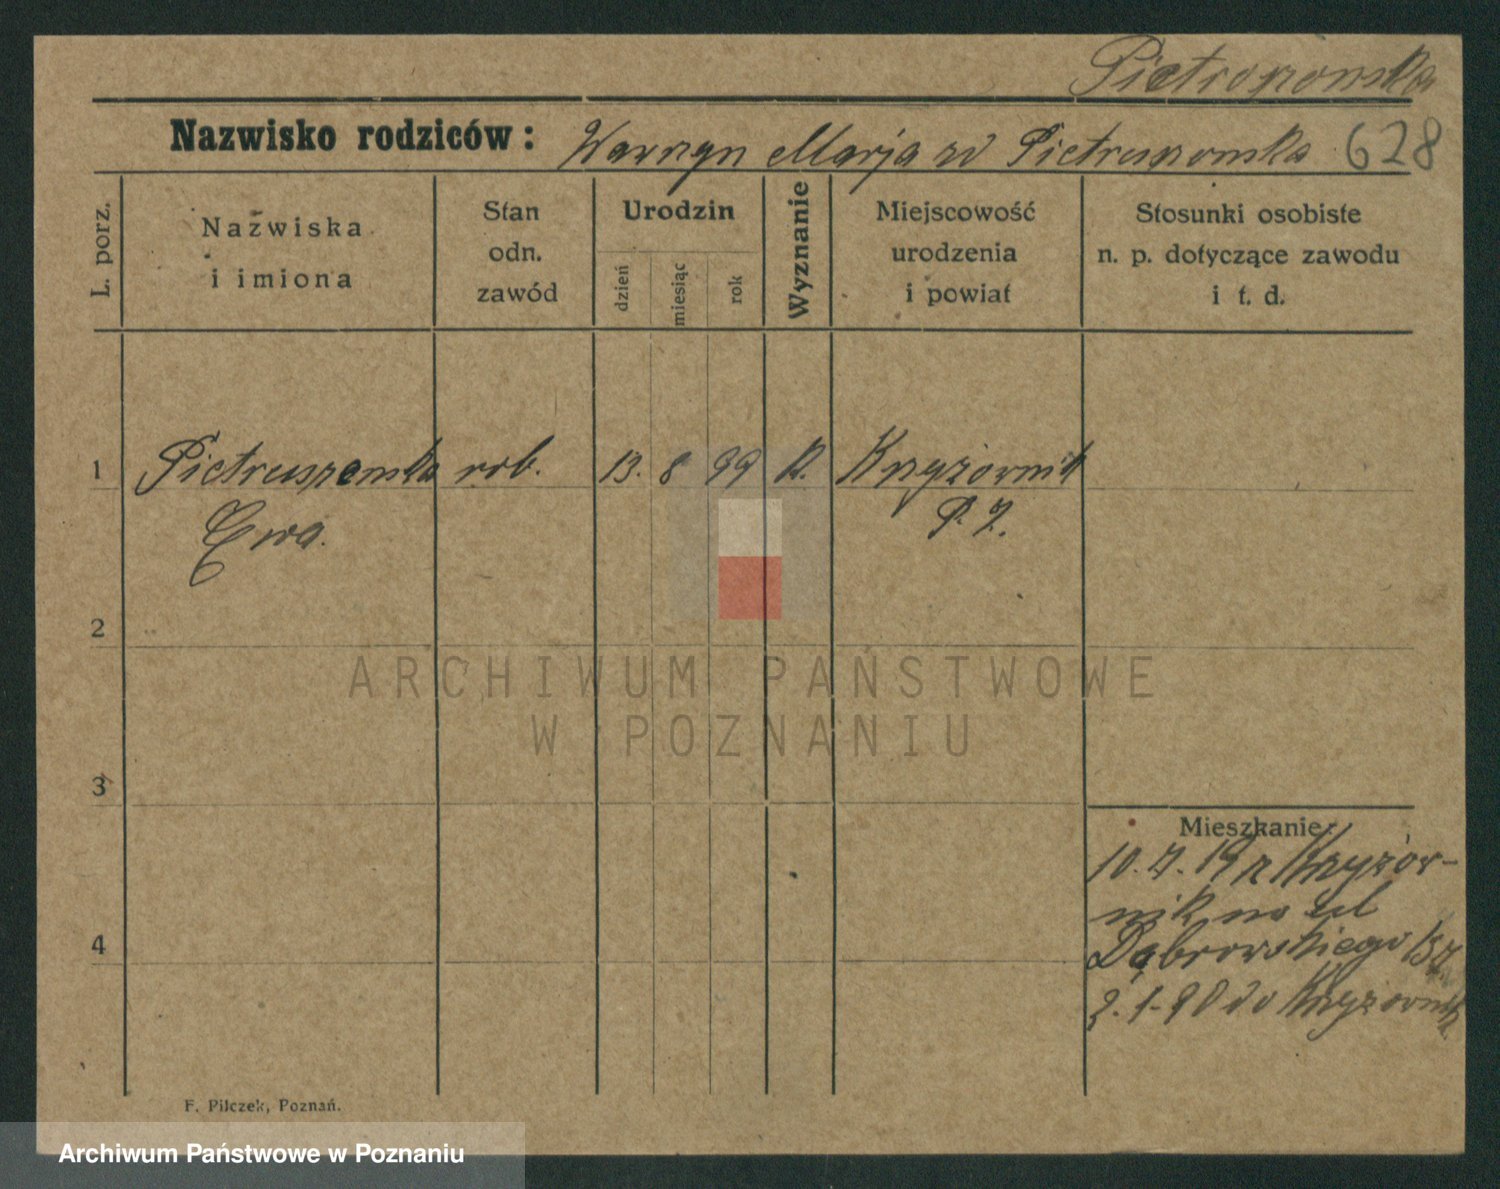 628
Nazwisko rodziców: Wawrzyn Marja zd
L. porz.
Nazwiska i imiona
Stan odn. zawód
Urodzin
dzień
miesiąc
rok
Wyznanie
Miejscowość urodzenia i powiat
Stosunki osobiste n. p. dotyczące zawodu i t. d.
1 rob. 13. 8 99 K. Krzyżownik
Ewa. P. Z.
2
3
4
Mieszkanie:
10. 7. 19 z Krzyżow-
nik na ul
Dąbrowskiego
do Krzyżownik
F. Pilczek, Poznań.
ARCHIWUM PAŃSTWOWE
W POZNANIU
Archiwum Państwowe w Poznaniu